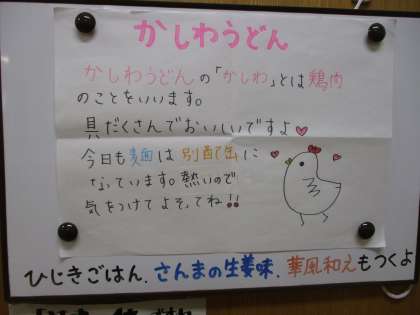 かしわうどん
かしわうどんの「かしわ」とは鶏肉
のことをいいます。
具だくさんでおいしいですよ
今日も麺は別配缶に
なっています。熱いので
気をつけてよそってね!!
ひじきごはん、さんまの生姜味、華風和えもつくよ